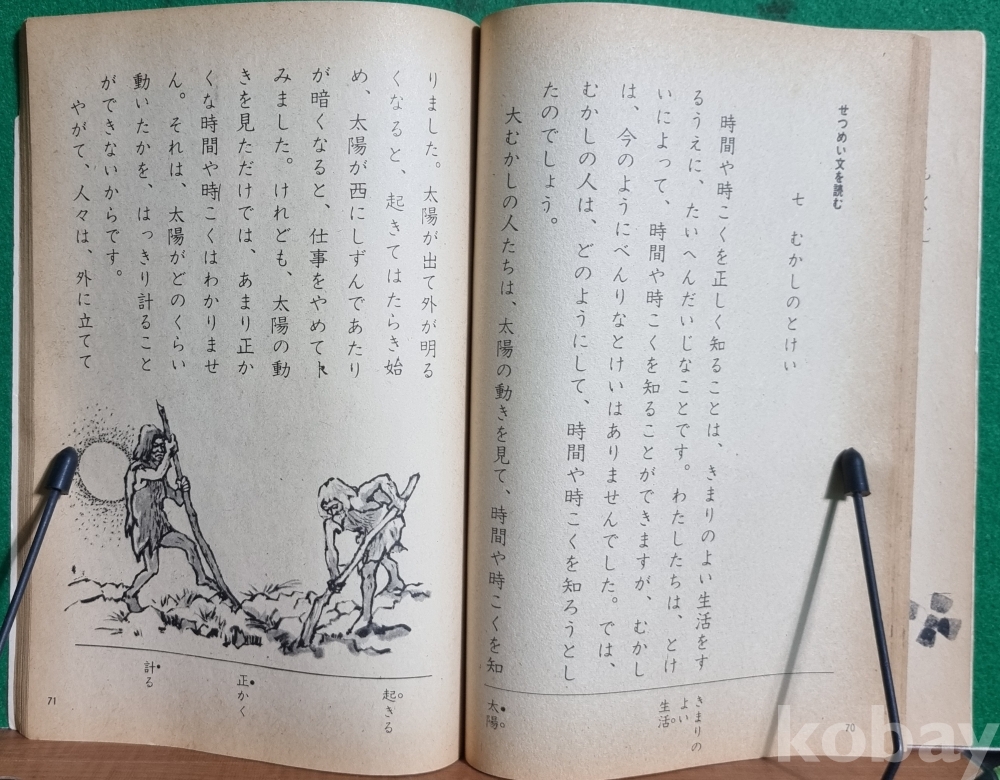 せつめい文を読む
七　むかしのとけい
時間や時こくを正しく知ることは、きまりのよい生活をす
るうえに、たいへんだいじなことです。わたしたちは、とけ
いによって、時間や時こくを知ることができますが、むかし
は、今のようにべんりなとけいはありませんでした。では、
むかしの人は、どのようにして、時間や時こくを知ろうとし
たのでしょう。
大むかしの人たちは、太陽の動きを見て、時間や時こくを知
きまりの
よい
生活
太陽
70
りました。太陽が出て外が明る
くなると、起きてはたらき始
め、太陽が西にしずんであたり
が暗くなると、仕事をやめて休
みました。けれども、太陽の動
きを見ただけでは、あまり正か
くな時間や時こくはわかりませ
ん。それは、太陽がどのくらい
動いたかを、はっきり計ること
ができないからです。
やがて、人々は、外に立てて
起きる
正かく
計る
71
kobay